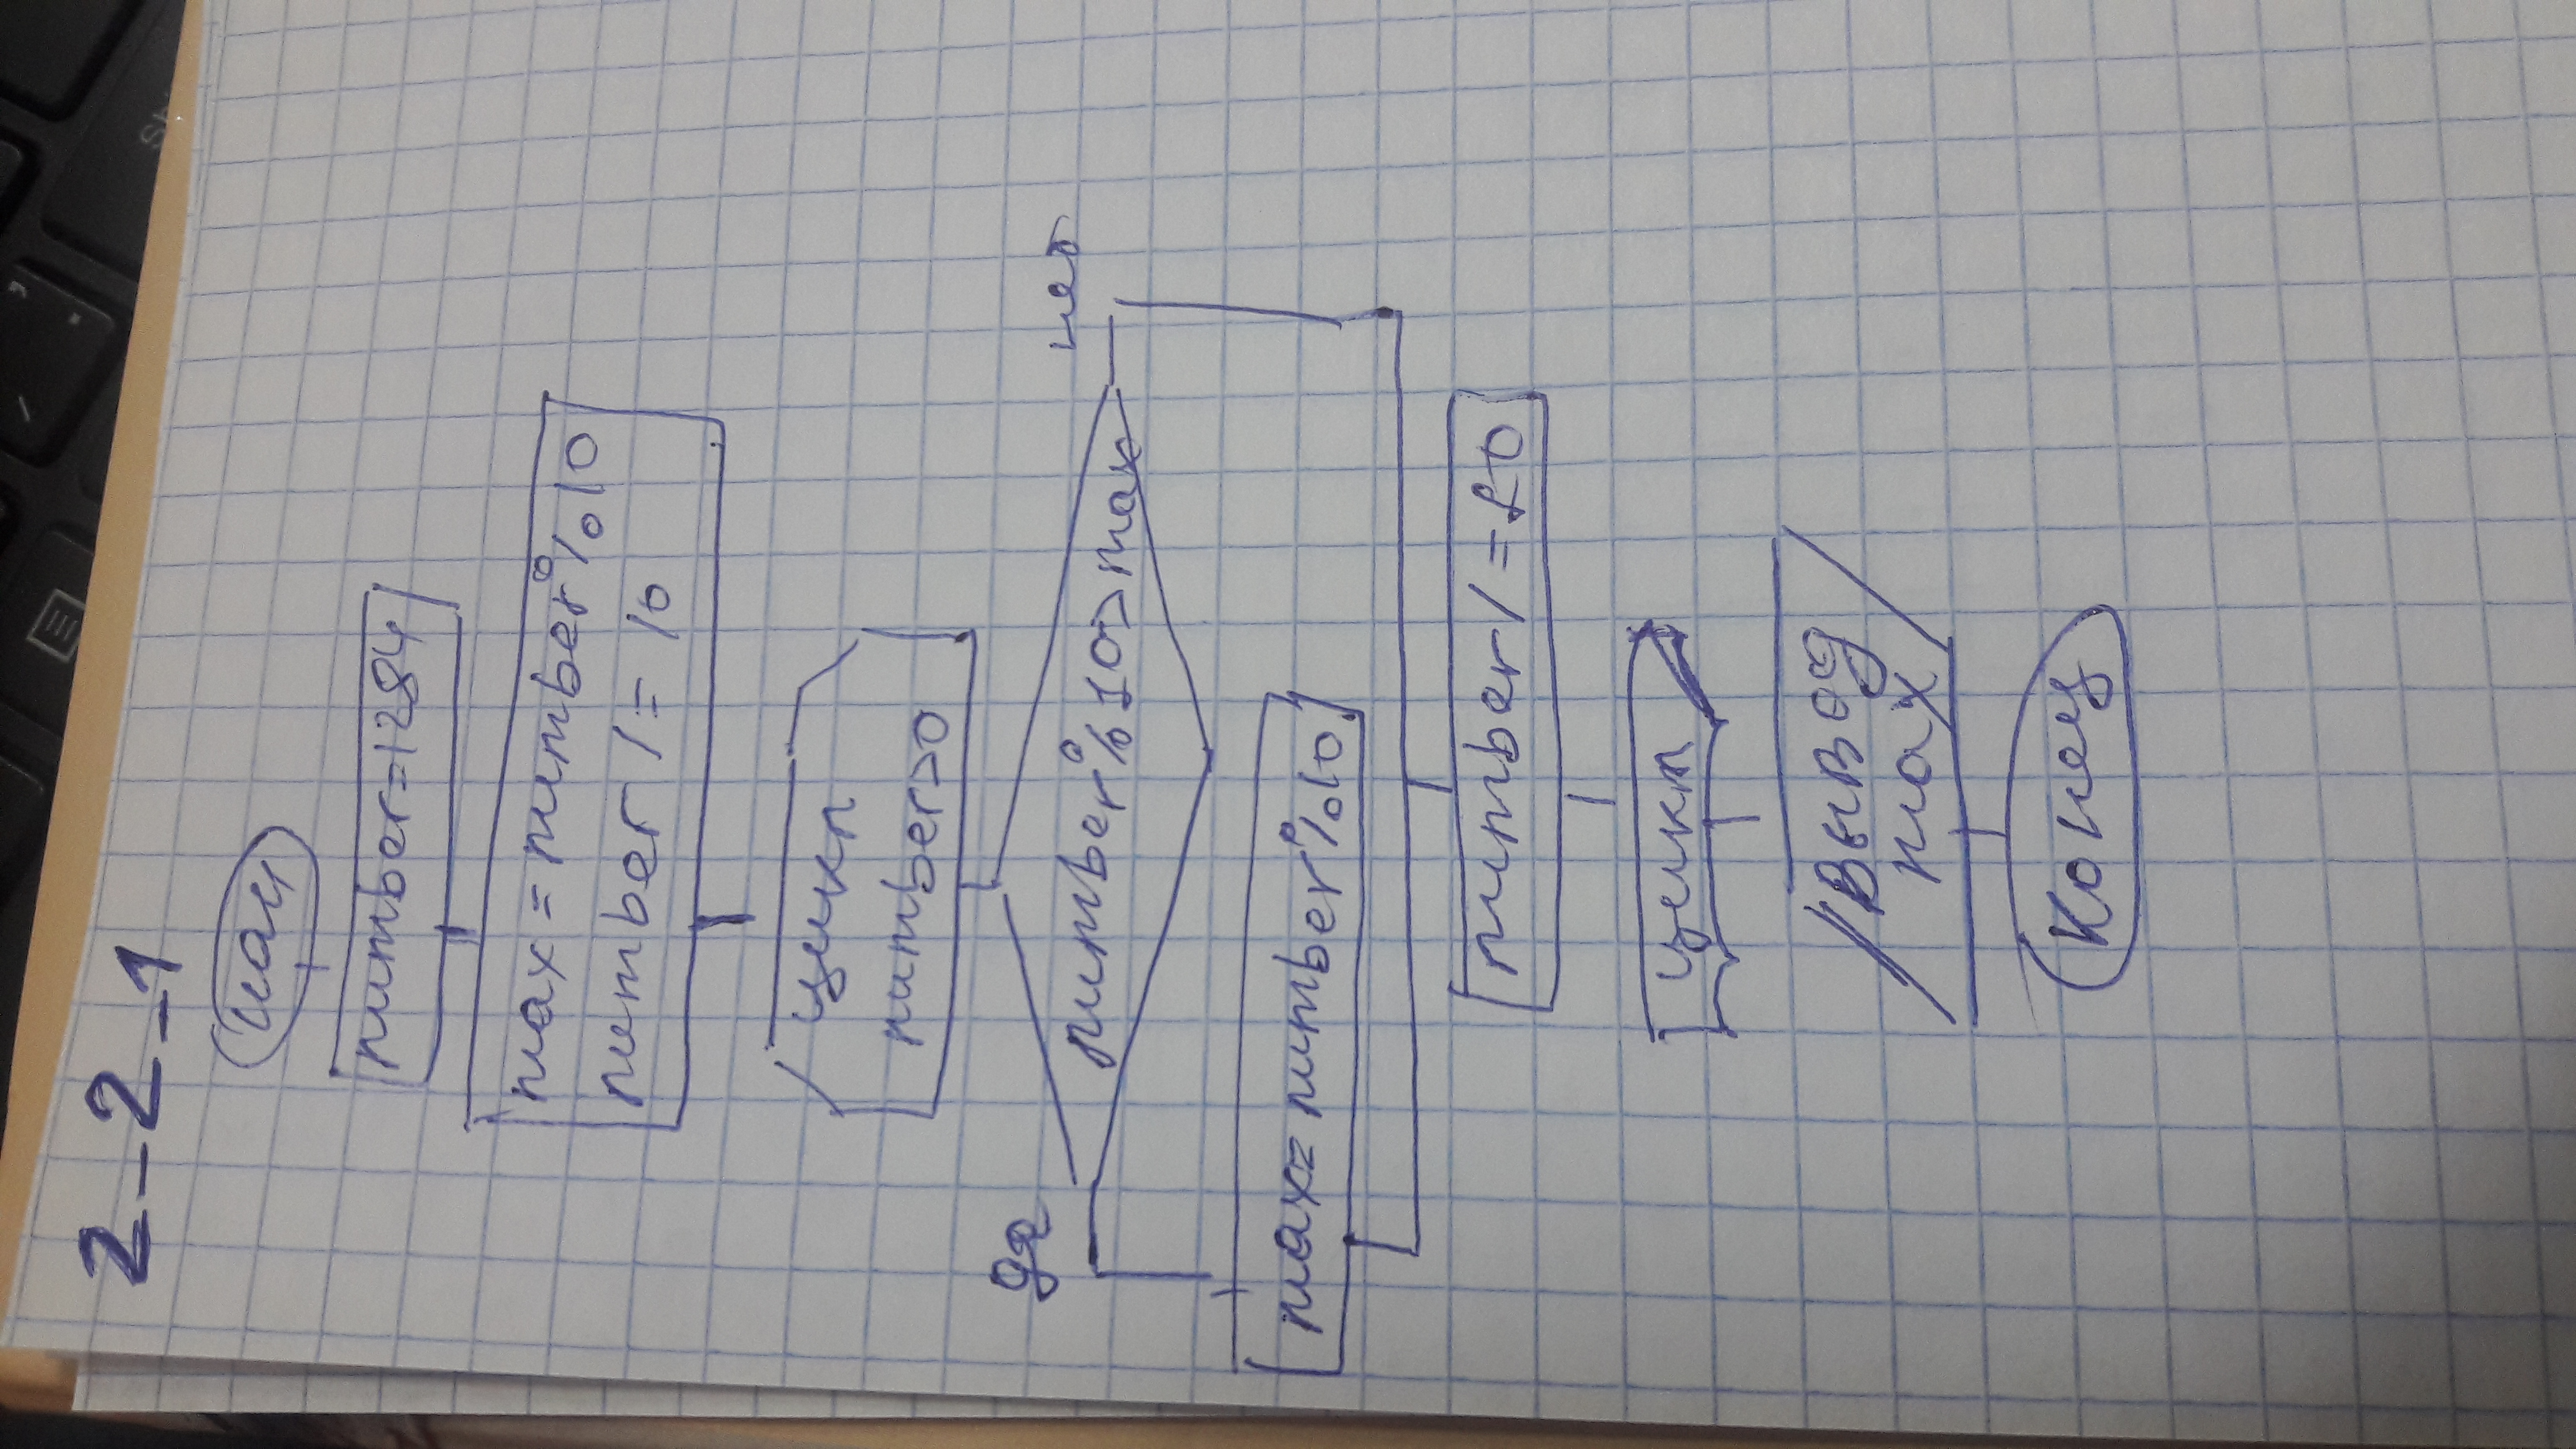 2-2-1
нач
number=1284
max = number%10
number /= 10
цикл
number>0
да
number%10>max
нет
max=number%10
number/=10
цикл
вывод
max
конец